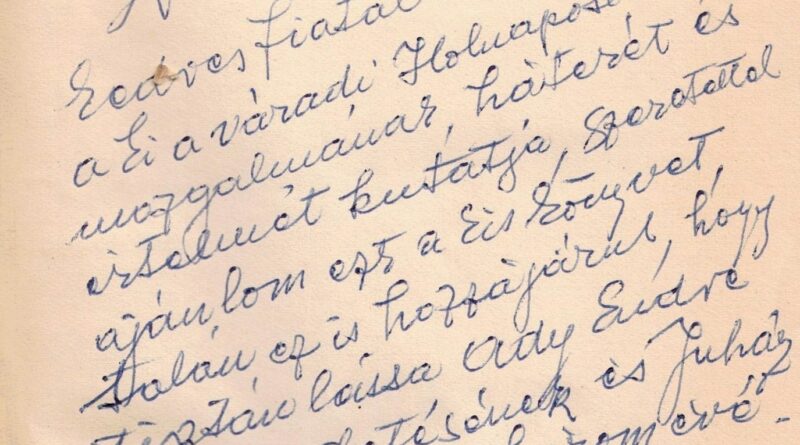 Kedves fiatal
a ki a váradi Holnaposo
mozgalmának, háterét és
értelmét kutatja, szeretettel
ajánlom ezt a kis könyvet,
talán ez is hozzájárul, hogy
tisztán lássa Ady Endre
és Juház